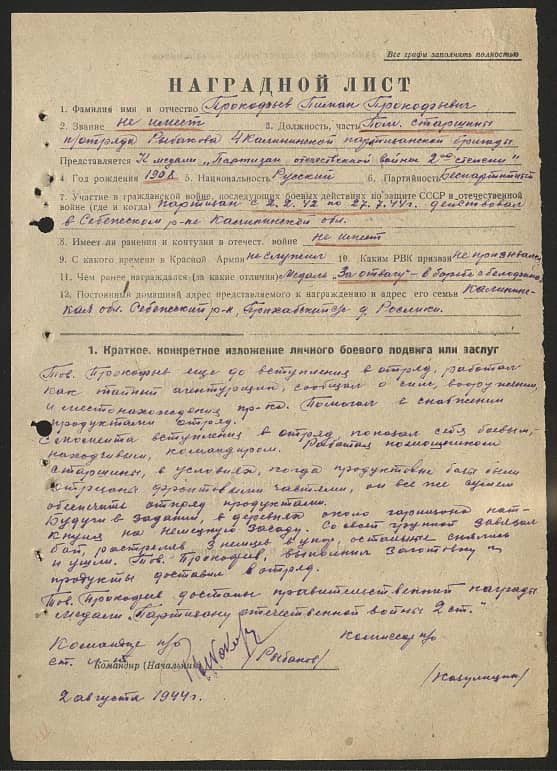 Все графы заполнять полностью
НАГРАДНОЙ ЛИСТ
1. Фамилия имя и отчество Прокофьев Прокофьевич
2. Звание не имеет 3. Должность, часть Пом. старшины
п/отряда Рыбакова 4 Калининской партизанской бригады
Представляется К медали „Партизан отечественной войны 2ой степени"
4. Год рождения 1908 5. Национальность Русский 6. Партийность Беспартийный
7. Участие в гражданской войне, последующих боевых действиях по защите СССР и отечественной
войне (где и когда) партизан с 2.2.42 по 27.7.44г. действовал
в Себежском р-не Калининской обл.
8. Имеет ли ранения и контузия в отечест. войне не имеет
9. С какого времени в Красной Армии не служил 10. Каким РВК призван не призывался
11. Чем ранее награждался (за какие отличия) Медаль „За отвагу" – в борьбе с
12. Постоянный домашний адрес представляемого к награждению и адрес его семьи Калининс-
кая обл. Себежский р-н, д. Рослики.
1. Краткое, конкретное изложение личного боевого подвига или заслуг
Тов. Прокофьев еще до вступления в отряд, работал
как агентурщик, сообщал о силе, вооружении,
и местонахождения пр-ка. Помогал в снабжении
продуктами отряд.
С момента вступления в отряд показал себя боевым,
находчивым, командиром. Работая помощником
старшины, в условиях, когда продуктовые были
фронтовыми частями, он все же сумел
обеспечить отряд продуктами.
Будучи в задании, в деревнях около гарнизона нат-
кнулся на немецкую засаду. Со своей группой завязал
бой, расстрелял 3 немцев в упор, остальные снялись
и ушли. Тов. Прокофьев, выполнил заготовку и
продукты доставил в отряд.
Тов. Прокофьев достоин правительственной награды
медали „Партизану отечественной войны 2 ст."
Командир п/о Комиссар п/о
ст.
Командир (Начальник) /Рыбаков/
2 августа 1944г.